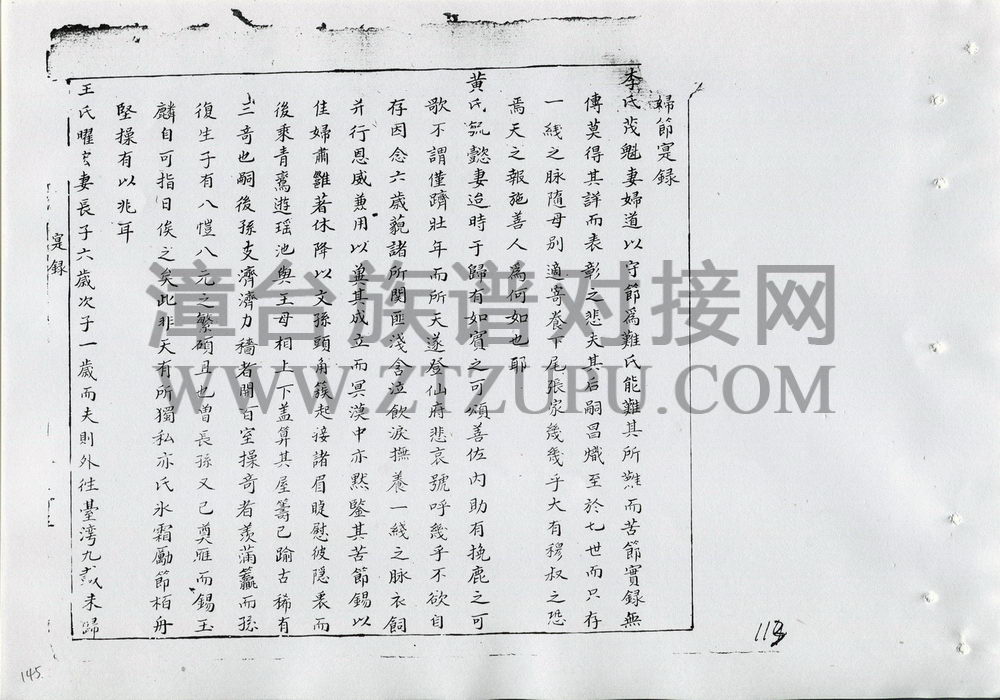 婦節寔録
李氏茂魁妻婦道以守節為難氏能難其所難而苦節實録無
傳莫得其詳而表彰之悲夫其后嗣昌熾至於七世而只存
一綫之脉隨母别適寄養下尾張家幾幾乎大有穆叔之恐
焉天之報施善人為何如也耶
黄氏 懿妻迨時于歸有如賓之可頌善佐内助有挽鹿之可
歌不謂僅躋壯年而所天遂登仙府悲哀號呼幾乎不欲自
存因念六歲藐諸所関匪淺含泣飲淚撫養一綫之脉衣飼
并行恩威兼用以冀其成立而冥漠中亦黙鑒其苦節錫以
佳婦肅雝著休降以文孫頭角簇起接諸眉睫慰彼隱衷而
後乘青鸞遊瑶池與王母相上下蓋算其屋籌已踰古稀有
三竒也嗣後孫支濟濟力穡者開百室操竒者羡滿籯而孫
復生子有八愷八元之繁碩且也曾長孫又已奠雁而錫玉
麟自可指日俟之矣此非天有所獨私亦氏氷霜勵節栢舟
堅操有以兆耳
王氏曜 妻長子六歲次子一歲而夫則外徃臺灣九載未歸
寔録
113
145.
漳台族谱对接网
WWW.ZTZUPU.COM